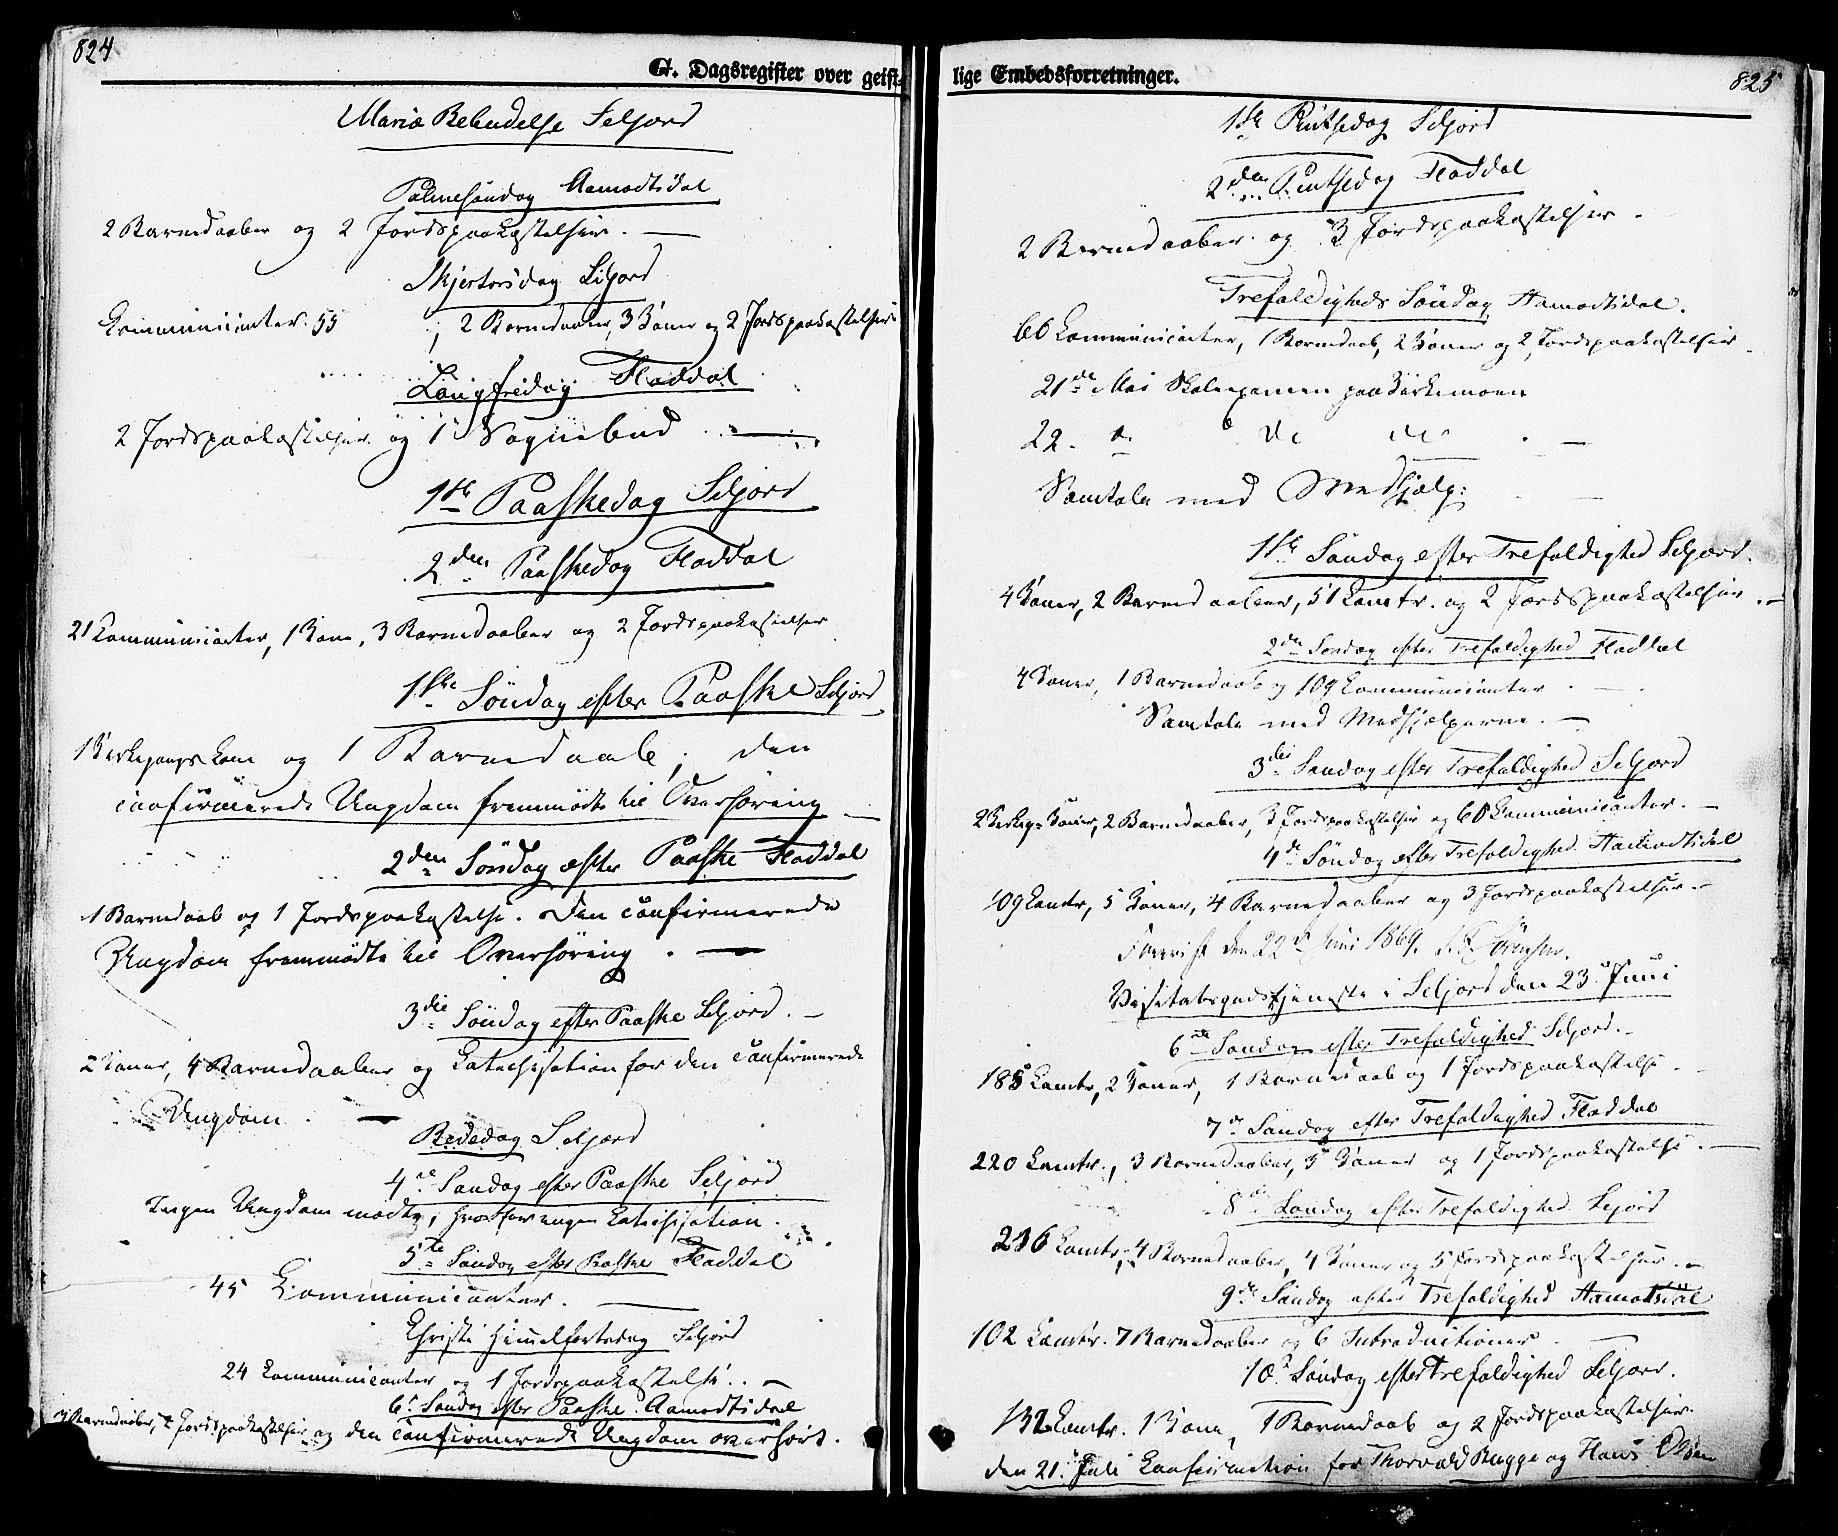 824
G. Dagsregister over geist-
Mariæ Bebudelse Seljord
Palmesöndag Aamodtsdal
2 Barnedaaber og 2 Jordspaakastelser. —
Skjertorsdag Seljord
Communicanter 55, 2 Barnedaaber, 3 Koner og 2 Jordspaakastelser
Langfredag Fladdal
2 Jordspaakastelser og 1 Sognebud —
1ste Paaskedag Seljord
2den Paaskedag Fladdal
21 Communicanter, 1 Kone, 3 Barnedaaber og 2 Jordspaakastelser
1ste Söndag efter Paaske Seljord
1 Kirkegangskone og 1 Barnedaab; den
confirmerede Ungdom fremmödte til Overhöring —
2den Söndag efter Paaske Fladdal
1 Barnedaab og 1 Jordspaakastelse. Den confirmerede
Ungdom fremmödte til Overhöring. —
3die Söndag efter Paaske Seljord. —
2 Koner, 4 Barnedaaber og Catechisation for den confirmerede
Ungdom. —
Bededag Seljord
4de Söndag efter Paaske Seljord
Ingen Ungdom mödte, hvorfor ingen Catechisation.
5te Söndag efter Paaske Fladdal
45 Communicanter. —
Christi Himmelfartsdag Seljord
24 Communicanter og 1 Jordspaakastelse. —
6te Söndag efter Paaske Aamodtsdal
Barnedaaber, 2 Jordspaakastelser og den confirmerede Ungdom overhört.
lige Embedsforretninger.
825
1ste Pintsedag Seljord
2den Pintsedag Fladdal
2 Barnedaaber og 3 Jordspaakastelser.
Trefoldigheds Söndag Aamodtsdal.
66 Communicanter, 1 Barnedaab, 2 Koner og 2 Jordspaakastelser
21de Mai Skoleexamen paa Kirkemoen
22. do do —
Samtale med Medhjælp: —
1ste Söndag efter Trefoldighed Seljord.
4 Koner, 2 Barnedaaber, 51 Comtr. og 2 Jordspaakastelser. —
2den Söndag efter Trefoldighed Fladdal
4 Koner, 1 Barnedaab og 109 Communicanter. —
Samtale med Medhjælperne. —
3die Söndag efter Trefoldighed Seljord
2 Kirkeg. Koner, 2 Barnedaaber, 3 Jordspaakastelser og 60 Communicanter. —
4de Söndag efter Trefoldighed Aamodtsdal
109 Comtr, 5 Koner, 4 Barnedaaber og 3 Jordspaakastelser. —
Forevist den 22de Juni 1869.
Visitatsgudstjeneste i Seljord den 23 Juni
6te Söndag efter Trefoldighed Seljord. —
185 Comtr, 2 Koner, 1 Barnedaab og 1 Jordspaakastelse
7de Söndag efter Trefoldighed Fladdal
220 Comtr., 3 Barnedaaber, 3 Koner og 1 Jordspaakastelse. —
8de Söndag efter Trefoldighed Seljord
216 Comtr, 4 Barnedaaber, 4 Koner og 5 Jordspaakastelser. —
9de Söndag efter Trefoldighed Aamotsdal
102 Comtr. 7 Barnedaaber og 6 Introductioner. —
10de Söndag efter Trefoldighed Seljord.
132 Comtr. 1 Kone, 1 Barnedaab og 2 Jordspaakastelser.
den 21. Juli Confirmation for Thorvald Bugge og Hans Olsen